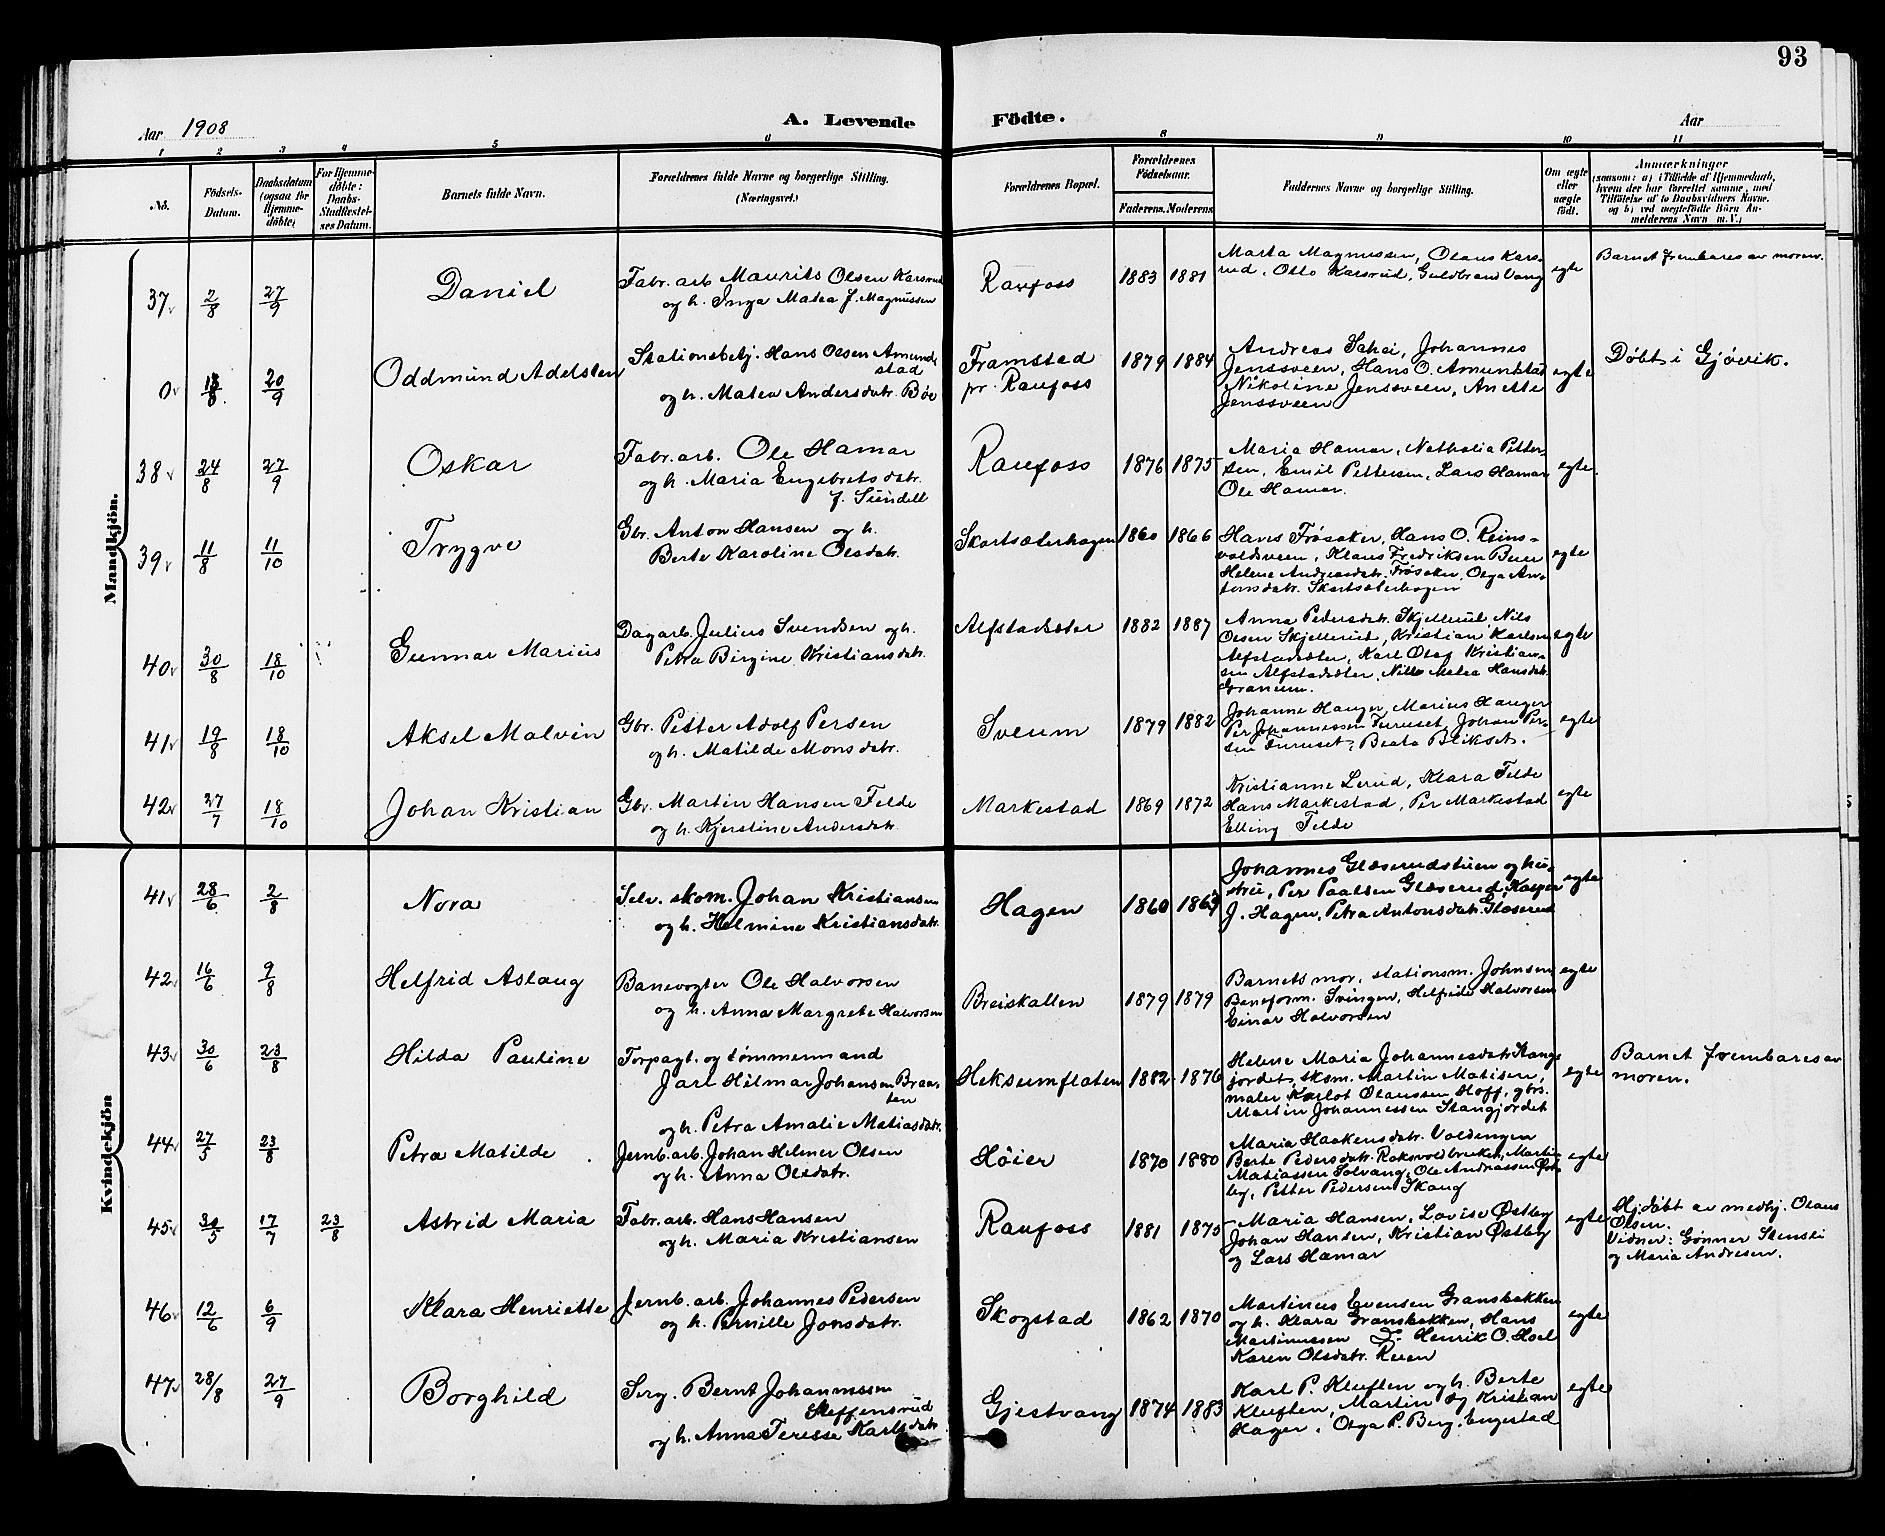 93
Aar 1908
A. Levende Födte.
Aar
1 2 3 4 5 6 8 9 10 11
No.
Födsels-Datum.
Daabsdatum (ogsaa for Hjemme-döbte)
For Hjemme-döbte: Daabs-Stadfæstel-ses Datum.
Barnets fulde Navn.
Forældrenes fulde Navne og borgerlige Stilling. (Næringsvei.)
Forældrenes Bopæl.
Forældrenes Födselsaar.
Faderens. Moderens
Faddernes Navne og borgerlige Stilling.
Om ægte eller uægte født.
Anmærkninger
(saasom: a) i Tilfælde af Hjemmedaab,
hvem der har forrettet samme, med
Tilföielse af to Daabsvidners Navne.
og b) ved uægtefödte Börn An-
melderens Navn m. V.)
Mandkjön.
37v 2/8 27/9 Daniel
Fabr. arb. Maurits Olsen Karsrud
og h. Inga Matea f. Magnussen
Raufoss 1883 1881
Marta Magnussen, Olaus Kars-
rud, Otto Karsrud, Guldbrand Vang
egte
Barnet frembares av moren.
0v 13/8 20/9 Oddmund Adelsten
Stationsbetj. Hans Olsen Amund
stad
og h. Matea Andersdatr. Bøe
Framstad
pr. Raufoss
1879 1884
Andreas Johannes
Jenssveen, Hans O. Amundstad
Nikoline Jenssveen, Anette
Jenssveen
egte
Døbt i Gjøvik.
38v 24/8 27/9 Oskar
Fabr. arb. Ole Hamar
og h. Maria Engebretsdatr.
f. Sundell
Raufoss 1876 1875
Maria Hamar, Nathalia Petter-
sen, Emil Pettersen, Lars Hamar
Ole Hamar.
egte
39v 11/8 11/10 Trygve
Gbr. Anton Hansen og h.
Berte Karoline Olsdatr.
Skartsæterhagen 1860 1866
Hans Frøsaker, Hans O. Reins-
voldsveen, Klaus Fredriksen
Helene Andreasdatr. Frøsaker, Olga An-
tonsdatr. Skartsæterhagen
egte
40v 30/8 18/10 Gunnar Marius
Dagarb. Julius Svendsen og h.
Petra Birgine Kristiansdatr.
Alfstadsæter 1882 1887
Anna Pedersdatr. Skjellerud, Nils
Olsen Skjellerud, Kristian Karlsen
Alfstadsæter, Karl Olaf Kristian-
sen Alfstadsæter, Matea Hansdatr.
Granum.
egte
41v 19/8 18/10 Aksel Malvin
Gbr. Petter Adolf Persen
og h. Matilde Monsdatr.
Sveum 1879 1882
Johanne Hauger, Marius Hauger
Per Johannessen Furuset, Johan Per-
sen Furuset, Beata Blikset.
egte
42v 27/7 18/10 Johan Kristian
Gbr. Martin Hansen Felde
og h. Kjerstine Andersdatr.
Markestad 1869 1872
Kristianne Lerud, Klara Felde
Hans Markestad, Per Markestad
Elling Felde
egte
Kvindekjön
41v 28/6 2/8 Nora
Selv. skom. Johan Kristiansen
og h. Helmine Kristiansdatr.
Hagen 1860 1863
Johannes Glæserudstuen og hu-
stru, Per Paalsen Glæserud, Kasper
J. Hagen, Petra Antonsdatr. Glæserud
egte
42v 16/6 9/8 Helfrid Aslaug
Banevogter Ole Halvorsen
og h. Anna Margrete Halvorsen
Breiskallen 1879 1879
Barnets mor, stationsm. Johnsen
Baneform. Svingen, Helfride Halvorsen
Einar Halvorsen
egte
43v 30/6 23/8 Hilda Pauline
Forpagt. og tømmermand
Jarl Hilmar Johansen Braa-
ten
og h. Petra Amalie Matiasdatr.
Heksumflaten 1882 1876
Helene Maria Johannesdatr. Stang-
jordet, skom. Martin Matisen,
maler Karlot Olaussen Hoff, gbrs.
Martin Johannessen Stangjordet
egte
Barnet frembares av
moren.
44v 27/5 23/8 Petra Matilde
Jernb. arb. Johan Helmer Olsen
og h. Anna Olsdatr.
Høier 1870 1880
Maria Haakensdatr. Voldengen
Berte Pedersdatr. Roksvoldbruket, Martin
Matiassen Solvang, Ole Andreassen Øst-
by, Petter Pedersen Skaug
egte
45v 30/5 17/7 23/8 Astrid Maria
Fabr. arb. Hans Hansen
og h. Maria Kristiansen
Raufoss 1881 1875
Maria Hansen, Lovise Østby
Johan Hansen, Kristian Østby
og Lars Hamar
egte
Hjdøbt av medhj. Olaus
Olsen.
Vidner: Gunner Stensli
og Maria Andresen.
46v 12/6 6/9 Klara Henriette
Jernb. arb. Johannes Pedersen
og h. Pernille Jonsdatr.
Skogstad 1862 1870
Martinus Evensen Gransbakken
og h. Klara Gransbakken, Hans
Martinussen Henrik O. Hoel
Karen Olsdatr. Ruen
egte
47v 28/8 27/9 Borghild
Serg. Bernt Johannessen
Steffensrud
og h. Anna Terese Karlsdatr
Gjestvang 1874 1883
Karl P. Kluften og h. Berte
Kluften, Martin og Kristian
Hager, Olga P. Berg. Engestad
egte